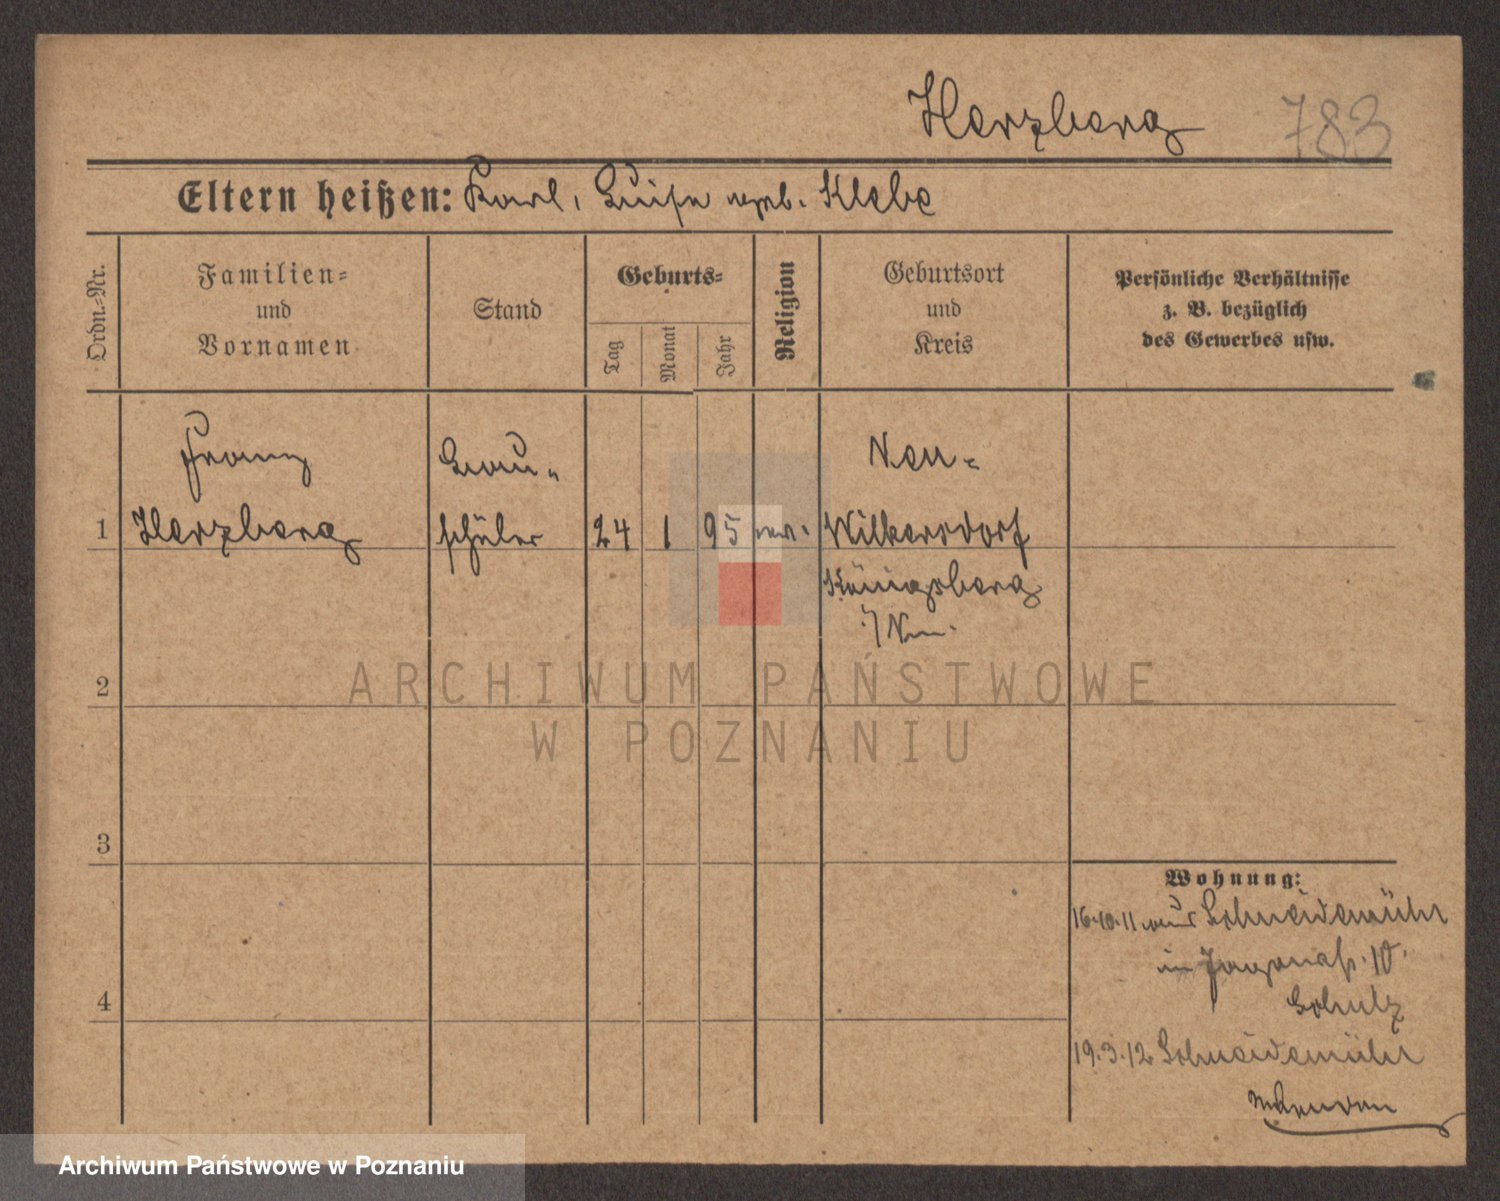 Herzberg 783
Eltern heißen: Karl, Luise geb. Klebe
Ordn.-Nr.
Familien-
und
Vornamen
Stand
Geburts-
Tag
Monat
Jahr
Religion
Geburtsort
und
Kreis
Persönliche Verhältnisse
z. B. bezüglich
des Gewerbes usw.
Franz Bau- Neu-
1 Herzberg schüler 24 1 95 ev. Wilkersdorf
Königsberg
i/Nm.
2
3
4
Wohnung:
16.10.11 aus Schneidemühl
in 10.
Schulz
19.3.12 Schneidemühl
ARCHIWUM PAŃSTWOWE
W POZNANIU
Archiwum Państwowe w Poznaniu